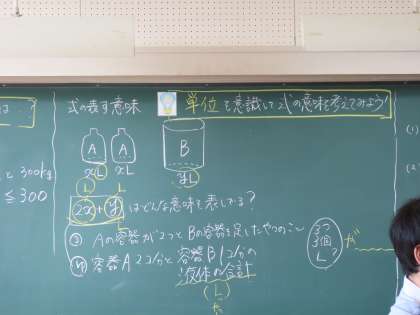 と 300kg
≤ 300
式の表す意味
単位を意識して式の意味を考えてみよう!
A A B
xL xL yL
L L
2x + y はどんな意味を表してる?
Aの容器が2つとBの容器を足したやつのこと
容器A2コ分と容器B1コ分の
液体の合計
L
3つ
3個
L?
が
(1)
(2)